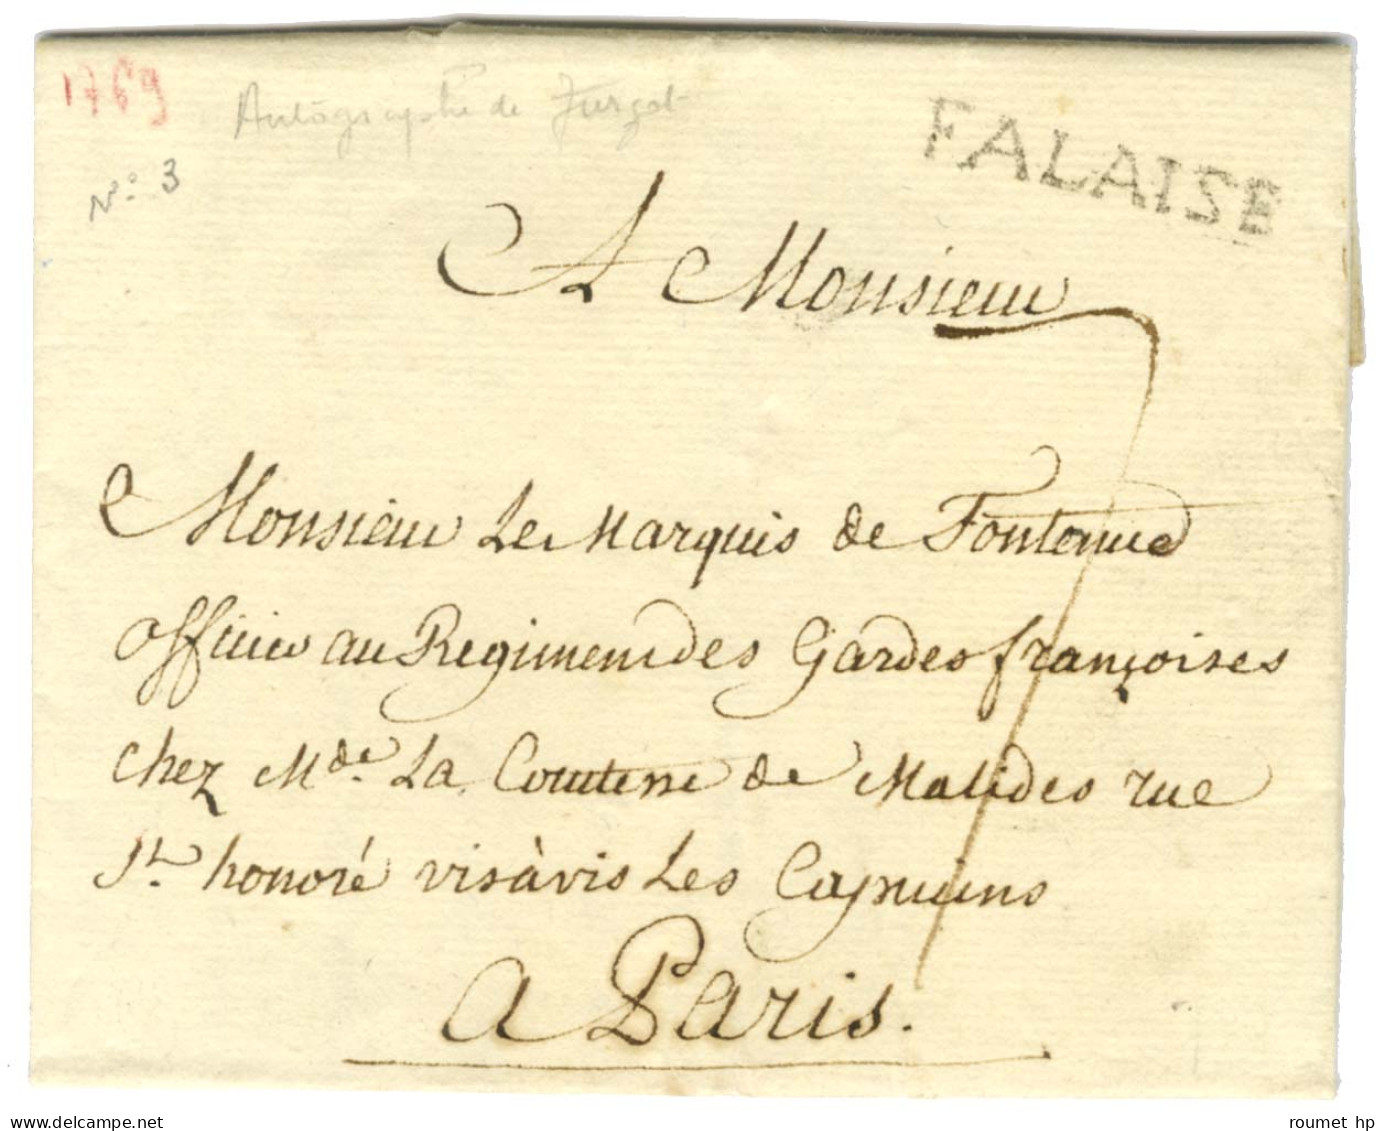 1769
Autographe de Turgot
N° 3
FALAISE
A Monsieur
7
Monsieur Le Marquis de
officier au Regiment des Gardes françoises
chez Mde. La Comtesse de Malides rue
St. honoré vis à vis Les Capucins
a Paris.
roumet hp